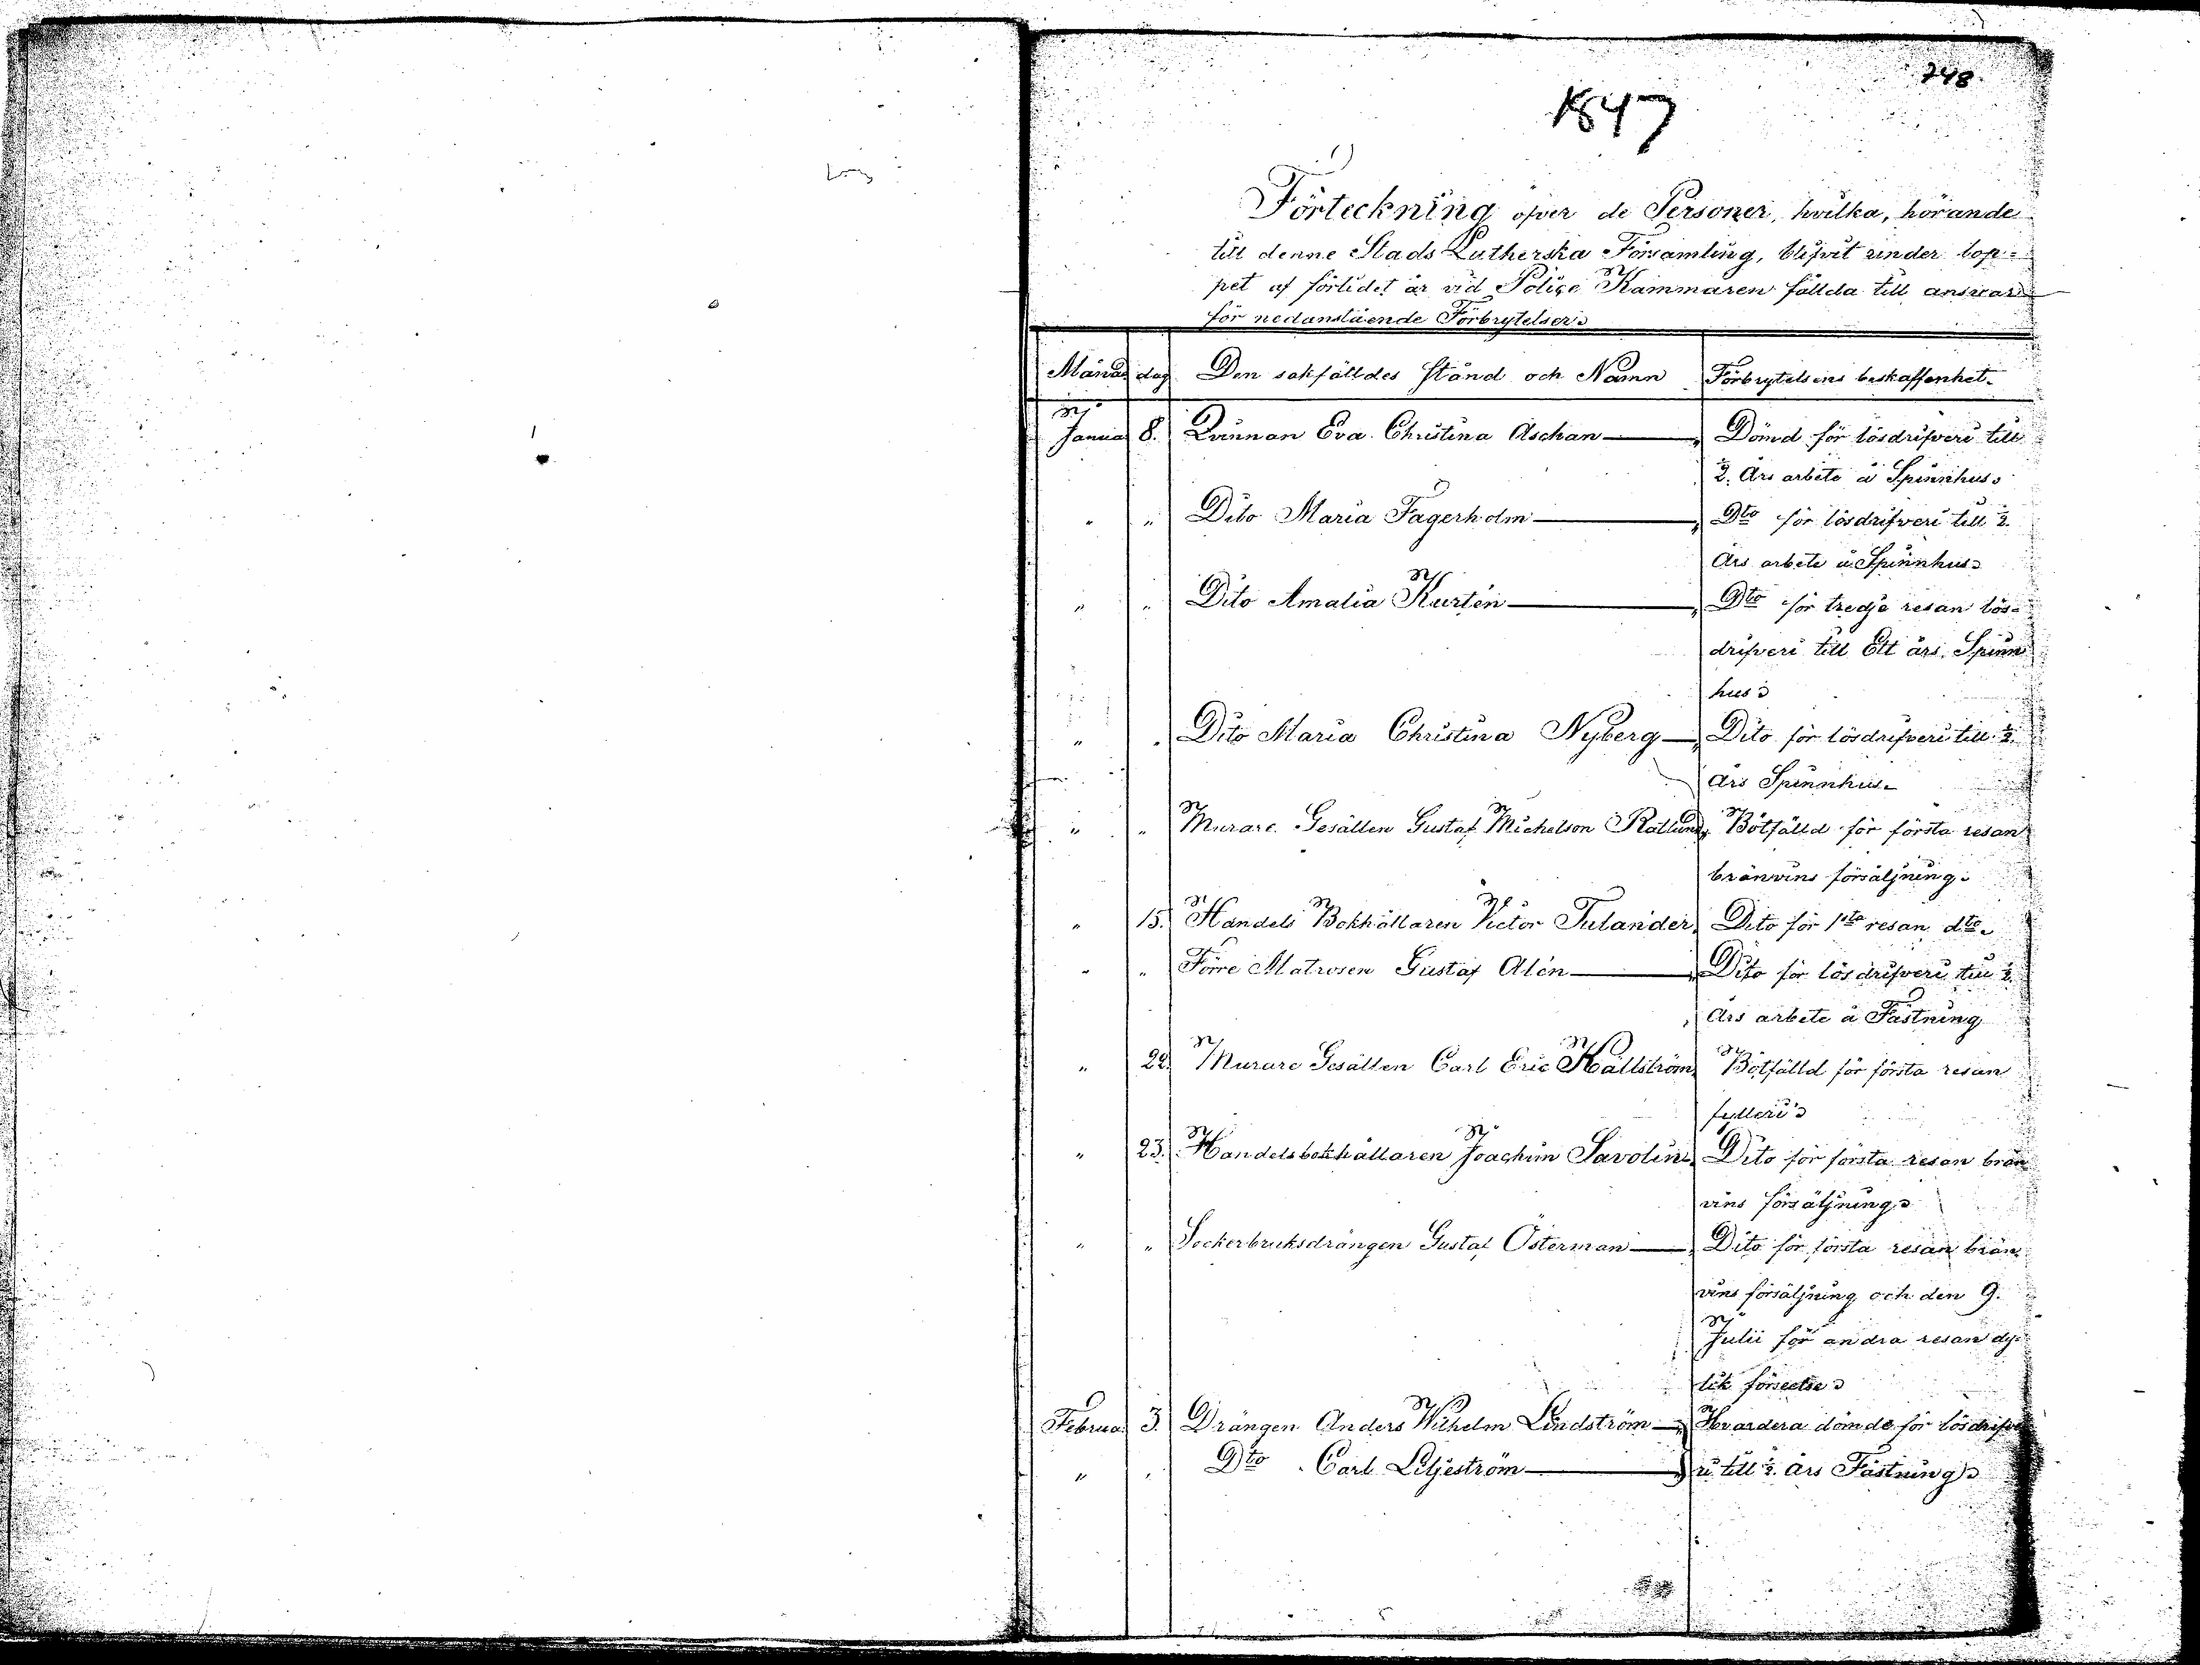 248.
1847
Förteckning öfver de Personer, hvilka, hörande
till denne Stads Lutherska Församling, blifvit under lop-
pet af förlidet år vid Police Kammaren fällda till answar
för nedanstående Förbrytelser.
Månad dag Den sakfälldes Stånd och Namn Förbrytelsens beskaffenhet.
Januar 8. Qvinnan Eva Christina Aschan — Dömd för lösdrifveri till
½ Års arbete å Spinnhus.
" " Dito Maria Fagerholm — Dto för lösdrifveri till ½
Års arbete å Spinnhus.
" " Dito Amalia Kurtén — Dto för tredje resan lös-
drifveri till Ett års Spinn
hus.
" " Dito Maria Christina Nyberg — Dito för lösdrifveri till ½
Års Spinnhus.
" " Murare Gesällen Gustaf Michelson Rotlund, Bötfälld för första resan
bränvins försäljning.
" 15. Handels Bokhållaren Victor Tulander, Dito för 1sta resan dto.
" " Förre Matrosen Gustaf Alén — Dito för lösdrifveri till ½
Års arbete å Fästning
" 22. Murare Gesällen Carl Eric Hällström, Bötfälld för första resan
fylleri.
" 23. Handelsbokhållaren Joachim Savolin, Dito för första resan brän
vins försäljning.
" " Sockerbruksdrängen Gustaf Österman — Dito för första resan brän
vins försäljning och den 9.
Julii för andra resan dy-
lik förseelse.
Februar 3. Drängen Anders Wilhelm Lindström — Hvardera dömde för lösdrifve
" " Dto Carl Liljeström — ri till ½ Års Fästning.